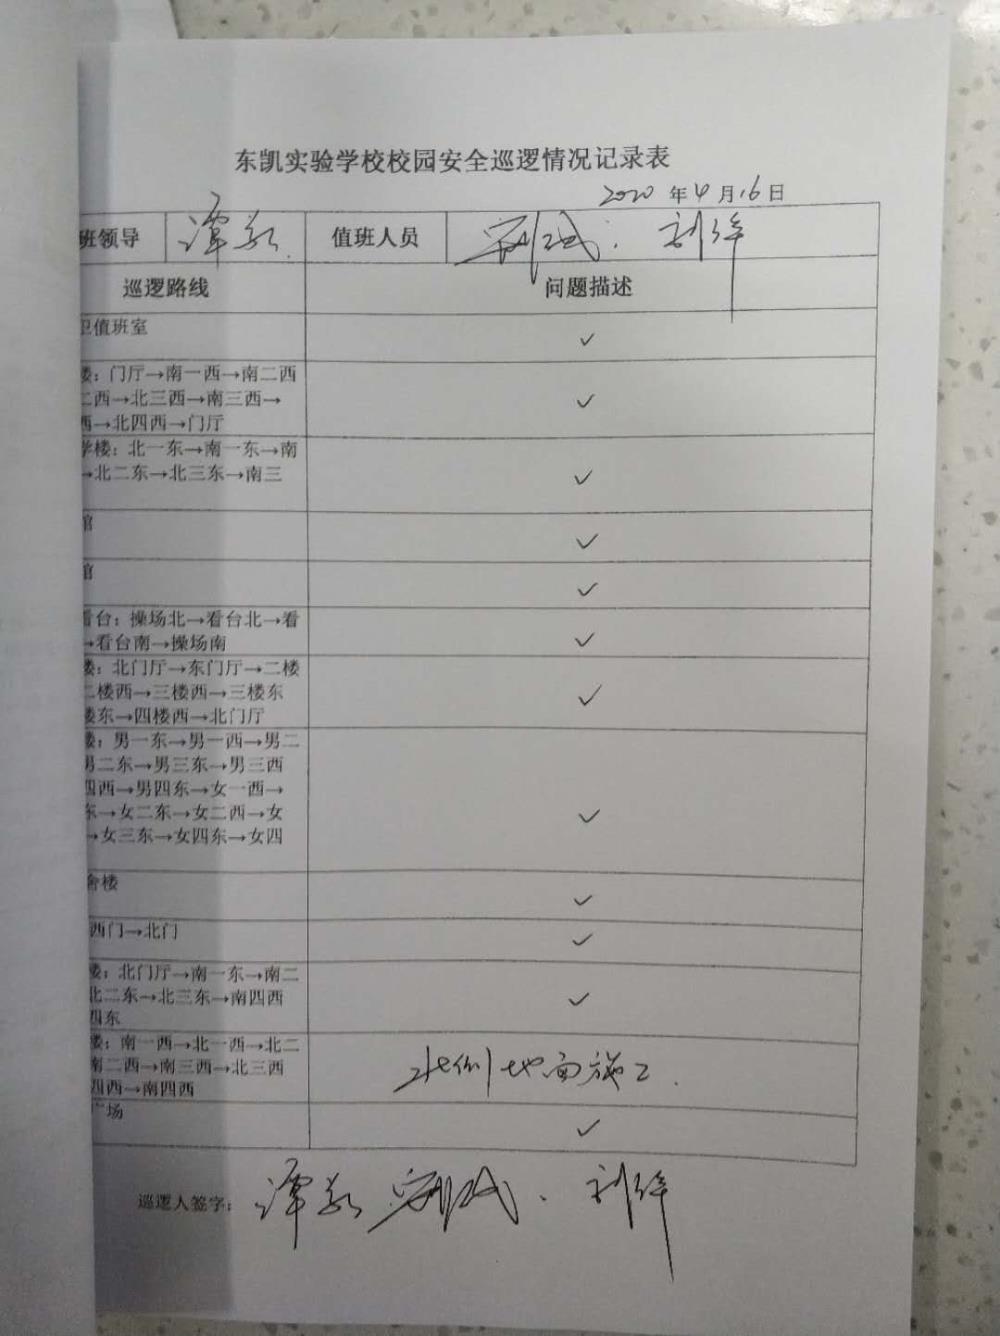 东凯实验学校校园安全巡逻情况记录表
2020 年 4 月 16 日
班领导 谭 值班人员 刘
巡逻路线 问题描述
卫值班室 ✓
楼：门厅→南一西→南二西
二西→北三西→南三西→ ✓
西→北四西→门厅
学楼：北一东→南一东→南
→北二东→北三东→南三 ✓
馆 ✓
馆 ✓
看台：操场北→看台北→看
→看台南→操场南 ✓
楼：北门厅→东门厅→二楼
二楼西→三楼西→三楼东 ✓
楼东→四楼西→北门厅
楼：男一东→男一西→男二
男二东→男三东→男三西
四西→男四东→女一西→
东→女二东→女二西→女 ✓
→女三东→女四东→女四
舍楼 ✓
西门→北门 ✓
楼：北门厅→南一东→南二
北二东→北三东→南四西 ✓
四东
楼：南一西→北一西→北二
南二西→南三西→北三西 北侧地面施工.
四西→南四西
广场 ✓
巡逻人签字： 谭 刘